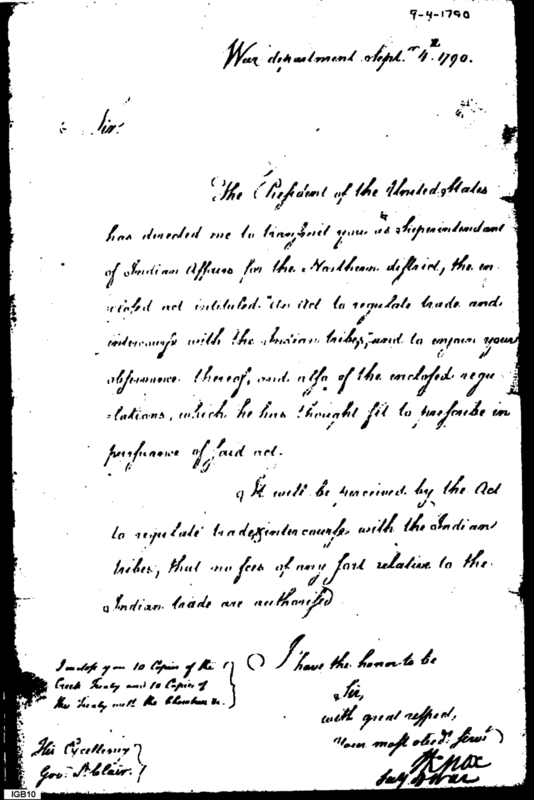 9-4-1790
War department Sept.r 4th 1790.
Sir
The President of the United States
has directed me to transmit you as Superintendant
of Indian Affairs for the Northern district, the en
closed act intituled "An Act to regulate trade and
intercourse with the Indian tribes," and to enjoin your
observance thereof, and also of the enclosed regu
lations, which he has thought fit to prescribe in
pursuance of said act.
It will be perceived by the Act
to regulate trade & intercourse with the Indian
tribes, that no fees of any sort relative to the
Indian trade are authorised
I have the honor to be
Sir,
with great respect,
Your most obedt. Servt
H Knox
Secy of War
I enclose you 10 Copies of the
Creek Treaty and 10 Copies of
the Treaty with the Cherokees &c.
His Excellency
Gov.r St. Clair.
IGB10